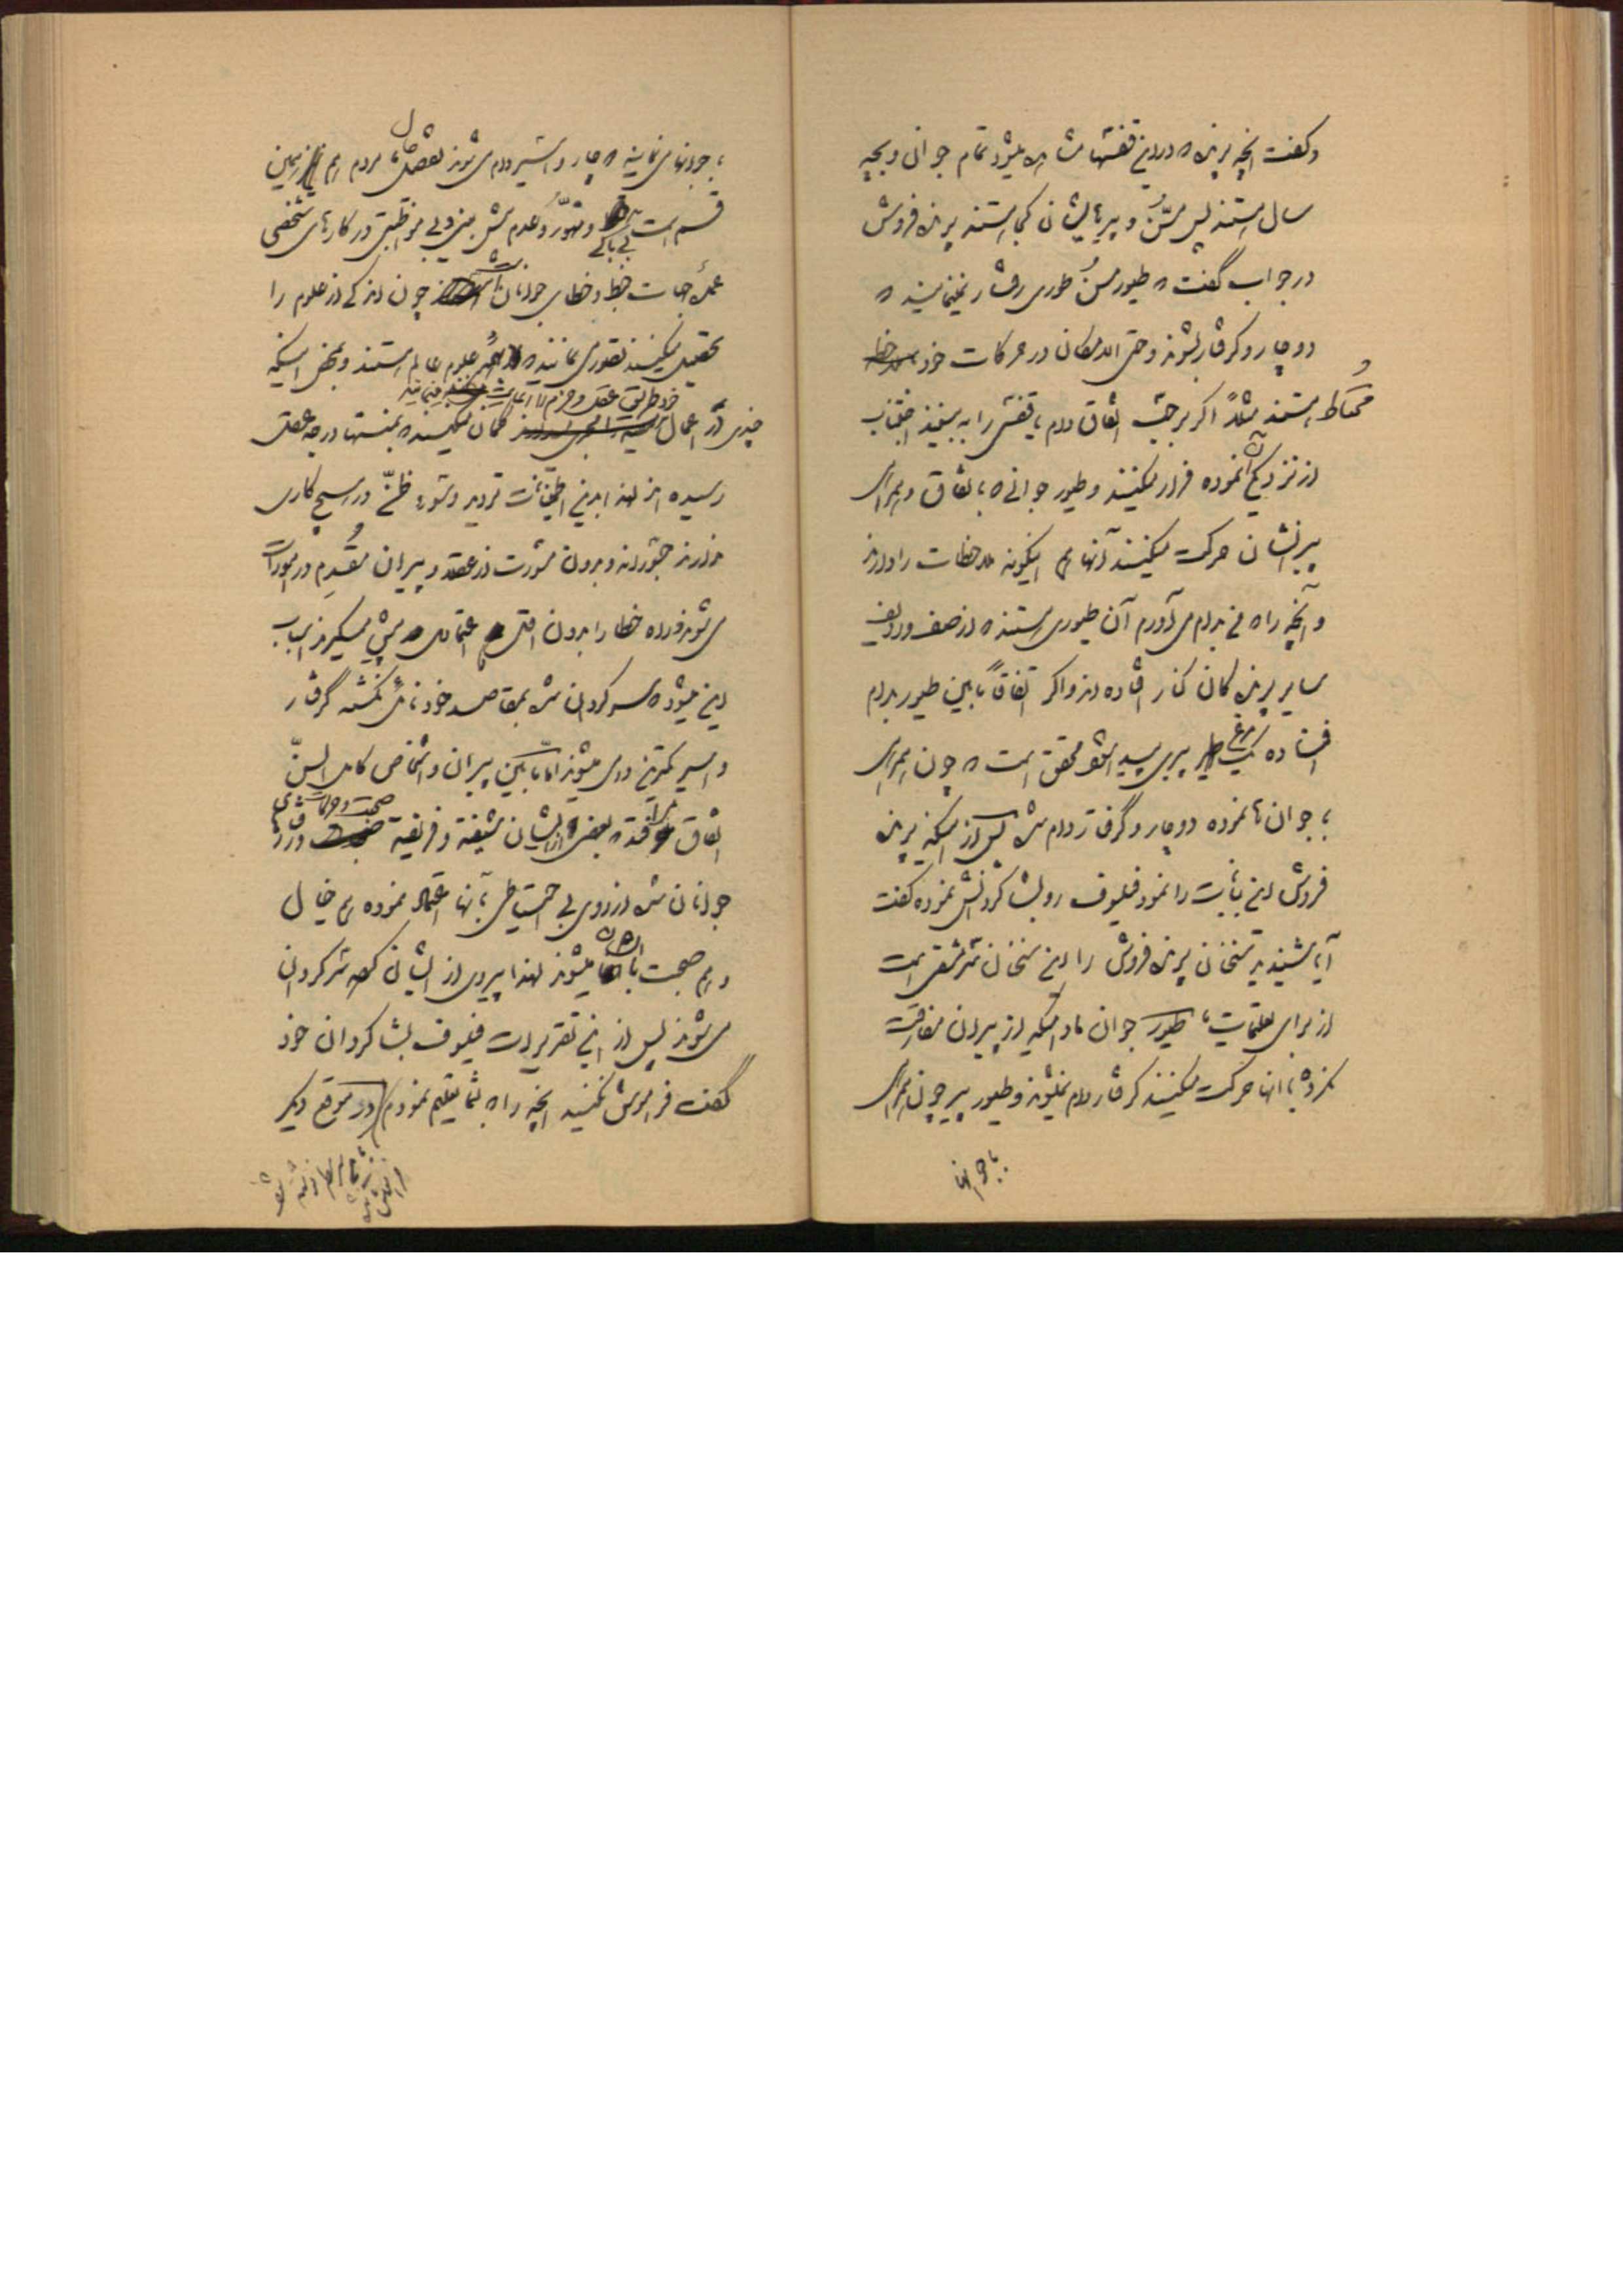 و گفت آنچه پرنده که در این قفسها مشاهده میشود تمام جوانی و بچه
سال هستند پس مسن و پیرهایشان کجا هستند پرنده فروش
در جواب گفت که طیور مسن طوری رفتار نمینمایند که
دوچار و گرفتار بشوند و حتی الامکان در حرکات خود ملاحظه
محتاط هستند مثلاً اگر بر حسب اتفاق دام یا قفسی را به بینند اجتناب
از نزدیکی آن نموده فرار میکنند و طیور جوانی که باتفاق و همراهی
پیرانشان حرکت میکنند آنها هم اینگونه ملاحظات را دارند
و آنچه را که من بدام می آورم آن طیوری هستند که از صف و ردیف
سایر پرندگان کنار افتاده اند و اگر اتفاقاً مابین طیور بدام
افتاده یک مرغ پیری پیدا شود محقق است که چون همراهی
با جوان ها نموده دوچار و گرفتار دام شده پس از اینکه پرنده
فروش این بیانات را نمود فیلسوف رو بشاگردانش نموده گفت
آیا شنیدید سخنان پرنده فروش را این سخنان سرمشقی است
از برای تعلیمات ما طیور جوان مادامیکه از پیران مفارقت
نکرده با آنها حرکت میکنند گرفتار دام نمیشوند و طیور پیر چون همراهی
با جوانها
با جوانها می نمایند دچار و اسیر دام می شوند بعضی مردم هم از همین
قسم است بی باکی و تهور و عدم پیش بینی و بی مواظبتی در کارهای شخصی
عمده جهات خبط و خطای جوانان است چون اندکی از علوم را
تحصیل میکنند تصور می نمایند که بهمه علوم عالم هستند و بمحض اینکه
خود طریق عقل و حزم را
چندی در اعمال گمان میکنند که بمنتها درجه عقل
رسیده اند لهذا با این اطمینانات تردید و سوء ظنی در هیچ کاری
ندارند جسورانه و بدون مشورت از عقلا و پیران مقدم در امورات
می شوند و راه خطا را بدون اقل اعتمادی پیش میگیرند اسباب
این میشود که سرگردان شده بمقاصد خود نائل نگشته گرفتار
و اسیر کمترین دامی میشوند اما مابین پیران و اشخاص کامل السن
اتفاق می افتد که بعضی از ایشان شیفته و فریفته صحبت و حرکات و رفتار
جوانان شده از روی بی احتیاطی بآنها اعتماد نموده هم خیال
و هم صحبت با آنها میشوند لهذا پیروی از ایشان کرده سرگردان
می شوند پس از این تقریرات فیلسوف بشاگردان خود
گفت فراموش نکنید آنچه را که بشما تعلیم نمودم در موقع دیگر